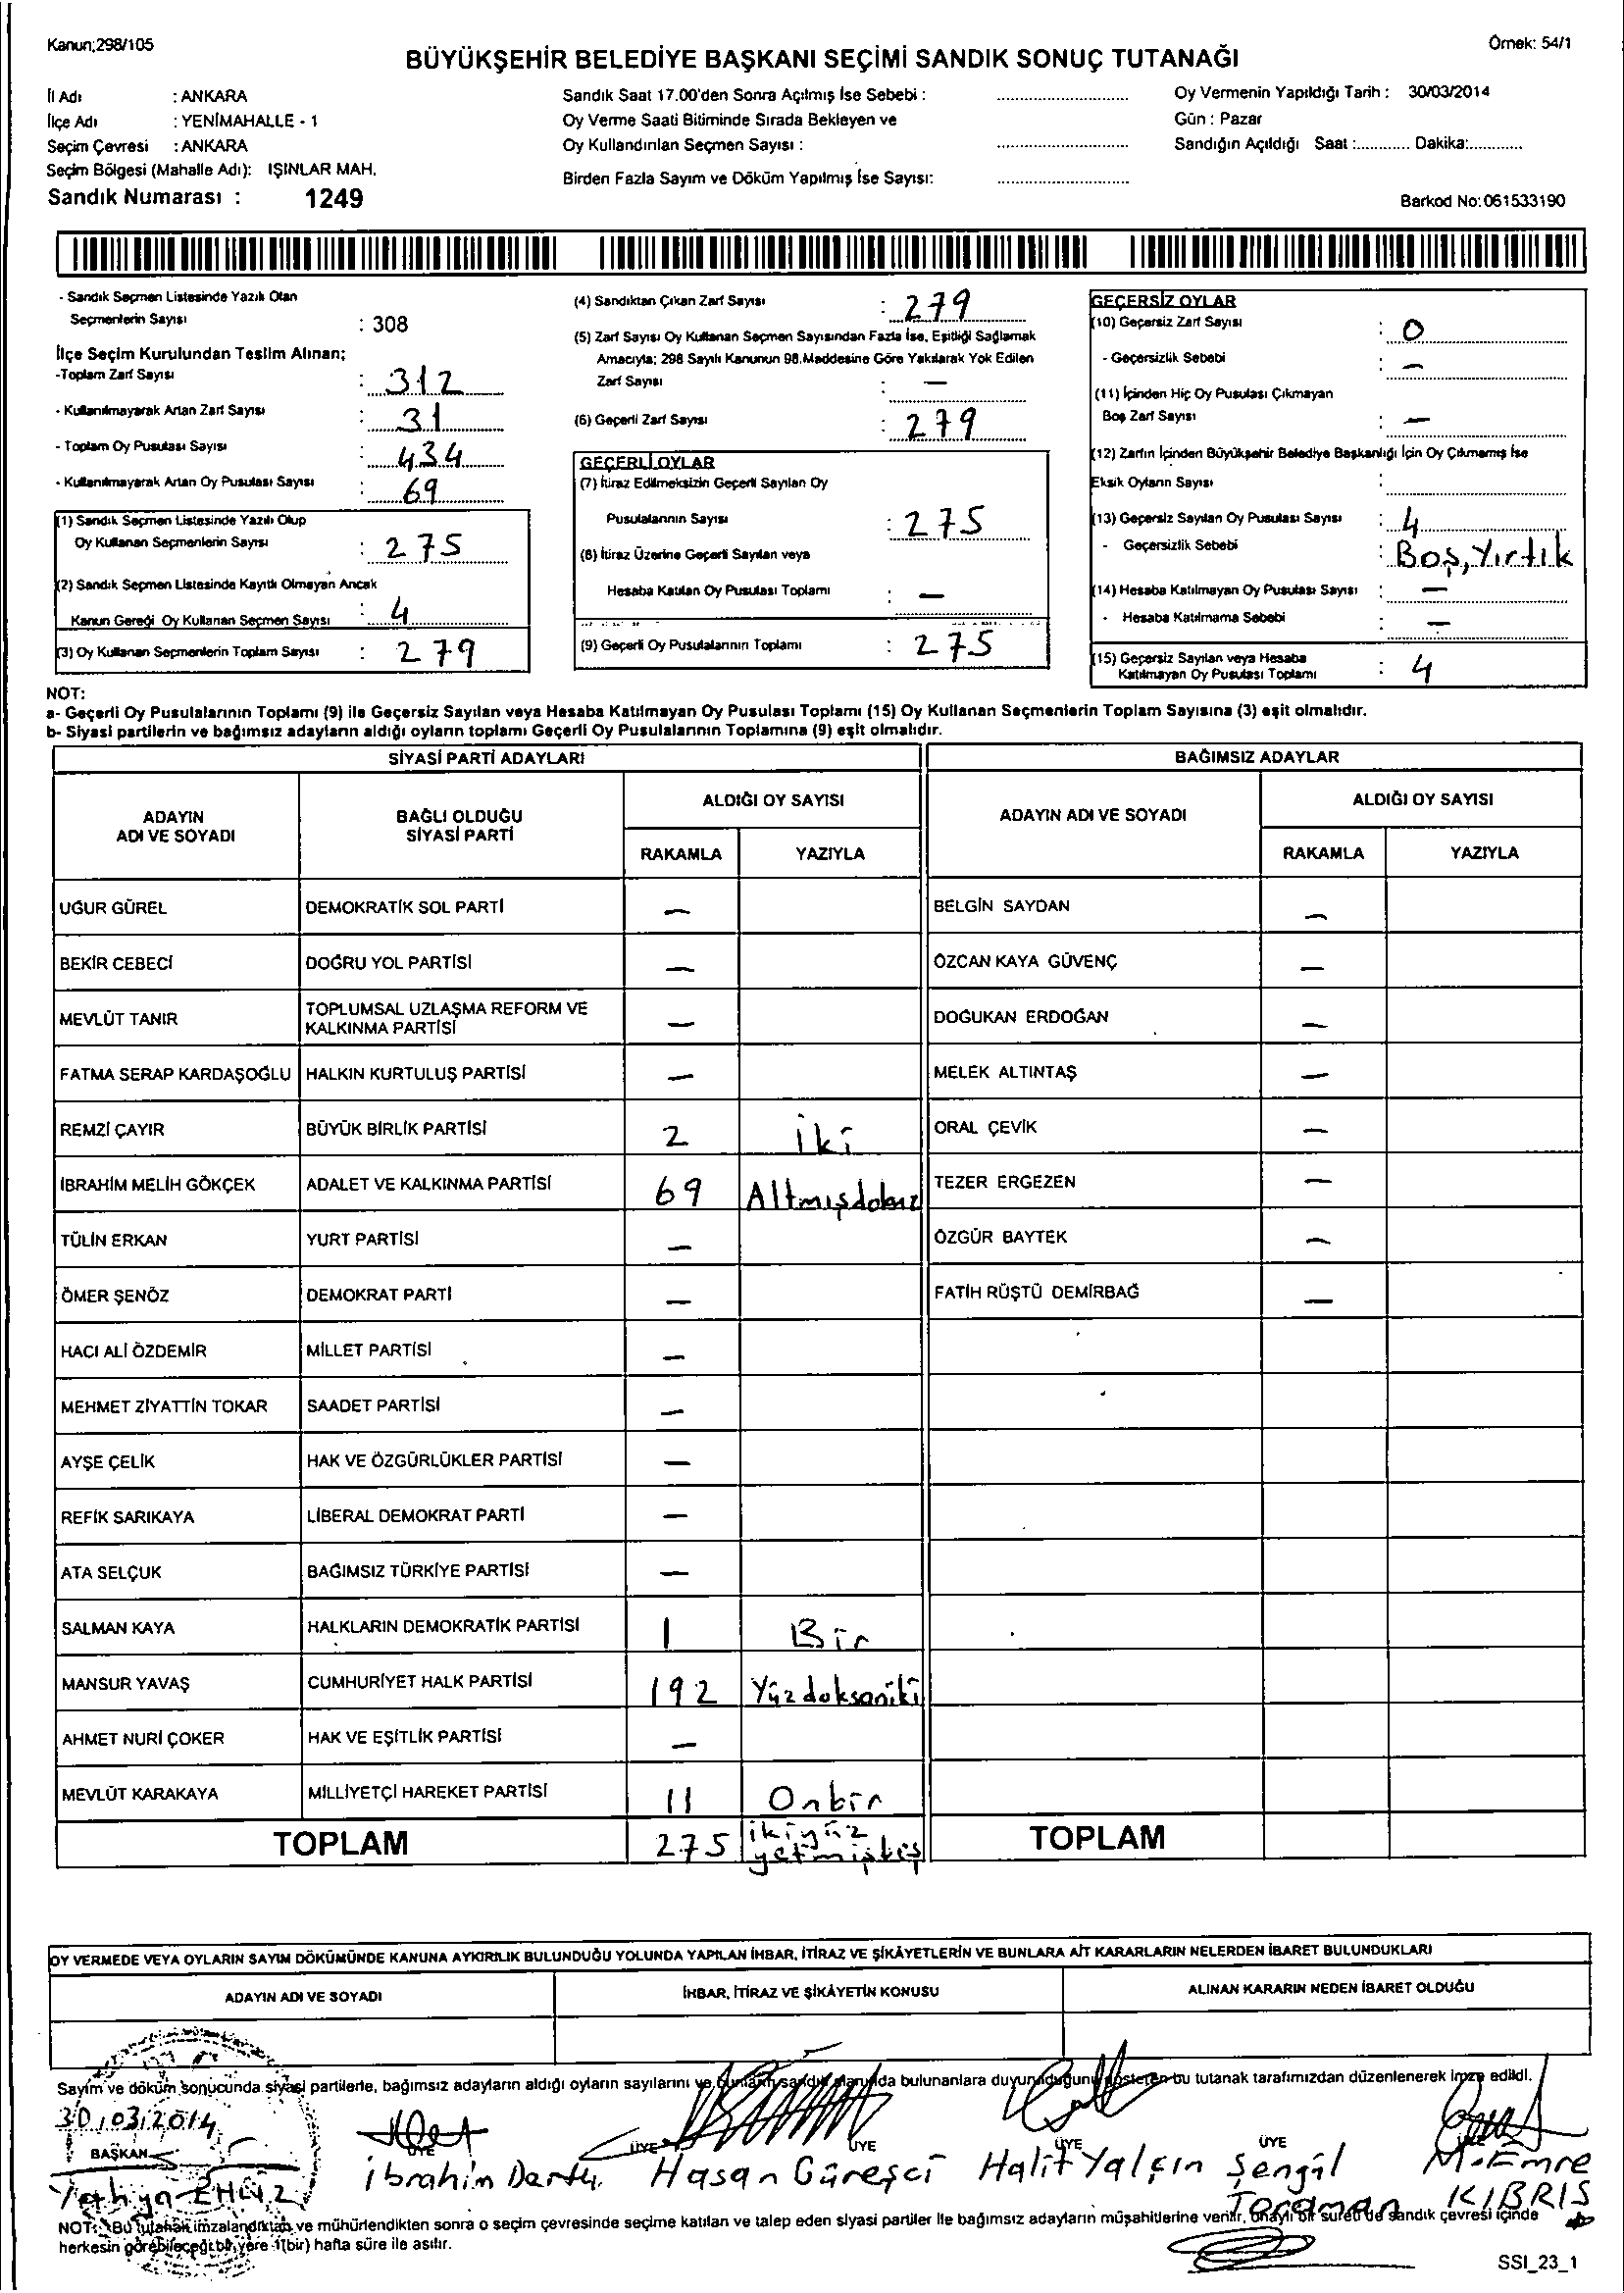 Kanun;298/105
Örnek: 54/1
BÜYÜKŞEHİR BELEDİYE BAŞKANI SEÇİMİ SANDIK SONUÇ TUTANAĞI
İl Adı : ANKARA
İlçe Adı : YENİMAHALLE - 1
Seçim Çevresi : ANKARA
Seçim Bölgesi (Mahalle Adı): IŞINLAR MAH.
Sandık Numarası : 1249
Sandık Saat 17.00'den Sonra Açılmış İse Sebebi :
Oy Verme Saati Bitiminde Sırada Bekleyen ve
Oy Kullandırılan Seçmen Sayısı :
Birden Fazla Sayım ve Döküm Yapılmış İse Sayısı:
Oy Vermenin Yapıldığı Tarih : 30/03/2014
Gün : Pazar
Sandığın Açıldığı Saat :............ Dakika:............
Barkod No:061533190
- Sandık Seçmen Listesinde Yazılı Olan
Seçmenlerin Sayısı : 308
İlçe Seçim Kurulundan Teslim Alınan;
-Toplam Zarf Sayısı : 312
- Kullanılmayarak Artan Zarf Sayısı : 31
- Toplam Oy Pusulası Sayısı : 434
- Kullanılmayarak Artan Oy Pusulası Sayısı : 69
(1) Sandık Seçmen Listesinde Yazılı Olup
Oy Kullanan Seçmenlerin Sayısı : 275
(2) Sandık Seçmen Listesinde Kayıtlı Olmayan Ancak
Kanun Gereği Oy Kullanan Seçmen Sayısı : 4
(3) Oy Kullanan Seçmenlerin Toplam Sayısı : 279
(4) Sandıktan Çıkan Zarf Sayısı : 279
(5) Zarf Sayısı Oy Kullanan Seçmen Sayısından Fazla İse, Eşitliği Sağlamak
Amacıyla; 298 Sayılı Kanunun 98.Maddesine Göre Yakılarak Yok Edilen
Zarf Sayısı : —
(6) Geçerli Zarf Sayısı : 279
GEÇERLİ OYLAR
(7) İtiraz Edilmeksizin Geçerli Sayılan Oy
Pusulalarının Sayısı : 275
(8) İtiraz Üzerine Geçerli Sayılan veya
Hesaba Katılan Oy Pusulası Toplamı : —
(9) Geçerli Oy Pusulalarının Toplamı : 275
GEÇERSİZ OYLAR
(10) Geçersiz Zarf Sayısı : 0
- Geçersizlik Sebebi : —
(11) İçinden Hiç Oy Pusulası Çıkmayan
Boş Zarf Sayısı : —
(12) Zarfın İçinden Büyükşehir Belediye Başkanlığı İçin Oy Çıkmamış İse
Eksik Oyların Sayısı :
(13) Geçersiz Sayılan Oy Pusulası Sayısı : 4
- Geçersizlik Sebebi : Boş, Yırtık
(14) Hesaba Katılmayan Oy Pusulası Sayısı : —
- Hesaba Katılmama Sebebi : —
(15) Geçersiz Sayılan veya Hesaba
Katılmayan Oy Pusulası Toplamı : 4
NOT:
a- Geçerli Oy Pusulalarının Toplamı (9) ile Geçersiz Sayılan veya Hesaba Katılmayan Oy Pusulası Toplamı (15) Oy Kullanan Seçmenlerin Toplam Sayısına (3) eşit olmalıdır.
b- Siyasi partilerin ve bağımsız adayların aldığı oyların toplamı Geçerli Oy Pusulalarının Toplamına (9) eşit olmalıdır.
SİYASİ PARTİ ADAYLARI BAĞIMSIZ ADAYLAR
ADAYIN ADI VE SOYADI BAĞLI OLDUĞU SİYASİ PARTİ ALDIĞI OY SAYISI ADAYIN ADI VE SOYADI ALDIĞI OY SAYISI
RAKAMLA YAZIYLA RAKAMLA YAZIYLA
UĞUR GÜREL DEMOKRATİK SOL PARTİ — BELGİN SAYDAN —
BEKİR CEBECİ DOĞRU YOL PARTİSİ — ÖZCAN KAYA GÜVENÇ —
MEVLÜT TANIR TOPLUMSAL UZLAŞMA REFORM VE KALKINMA PARTİSİ — DOĞUKAN ERDOĞAN —
FATMA SERAP KARDAŞOĞLU HALKIN KURTULUŞ PARTİSİ — MELEK ALTINTAŞ —
REMZİ ÇAYIR BÜYÜK BİRLİK PARTİSİ 2 İki ORAL ÇEVİK —
İBRAHİM MELİH GÖKÇEK ADALET VE KALKINMA PARTİSİ 69 Altmışdokuz TEZER ERGEZEN —
TÜLİN ERKAN YURT PARTİSİ — ÖZGÜR BAYTEK —
ÖMER ŞENÖZ DEMOKRAT PARTİ — FATİH RÜŞTÜ DEMİRBAĞ —
HACI ALİ ÖZDEMİR MİLLET PARTİSİ —
MEHMET ZİYATTİN TOKAR SAADET PARTİSİ —
AYŞE ÇELİK HAK VE ÖZGÜRLÜKLER PARTİSİ —
REFİK SARIKAYA LİBERAL DEMOKRAT PARTİ —
ATA SELÇUK BAĞIMSIZ TÜRKİYE PARTİSİ —
SALMAN KAYA HALKLARIN DEMOKRATİK PARTİSİ 1 Bir
MANSUR YAVAŞ CUMHURİYET HALK PARTİSİ 192 Yüzdoksaniki
AHMET NURİ ÇOKER HAK VE EŞİTLİK PARTİSİ —
MEVLÜT KARAKAYA MİLLİYETÇİ HAREKET PARTİSİ 11 Onbir
TOPLAM 275 ikiyüz yetmişbeş TOPLAM
OY VERMEDE VEYA OYLARIN SAYIM DÖKÜMÜNDE KANUNA AYKIRILIK BULUNDUĞU YOLUNDA YAPILAN İHBAR, İTİRAZ VE ŞİKÂYETLERİN VE BUNLARA AİT KARARLARIN NELERDEN İBARET BULUNDUKLARI
ADAYIN ADI VE SOYADI İHBAR, İTİRAZ VE ŞİKÂYETİN KONUSU ALINAN KARARIN NEDEN İBARET OLDUĞU
Sayım ve döküm sonucunda siyasi partilerle, bağımsız adayların aldığı oyların sayılarını ve bunların sandık alanında bulunanlara duyurulduğunu gösteren bu tutanak tarafımızdan düzenlenerek imza edildi.
30.03.2014
BAŞKAN ÜYE ÜYE ÜYE ÜYE ÜYE
Yahya İbrahim Hasan Güreşci Halit Yalçın Şengül Toraman M.Emre KIBRIS
NOT: Bu tutanak imzalandıktan ve mühürlendikten sonra o seçim çevresinde seçime katılan ve talep eden siyasi partiler ile bağımsız adayların müşahitlerine verilir, onaylı bir sureti de sandık çevresi içinde
herkesin görebileceği bir yere 1(bir) hafta süre ile asılır.
SSI_23_1